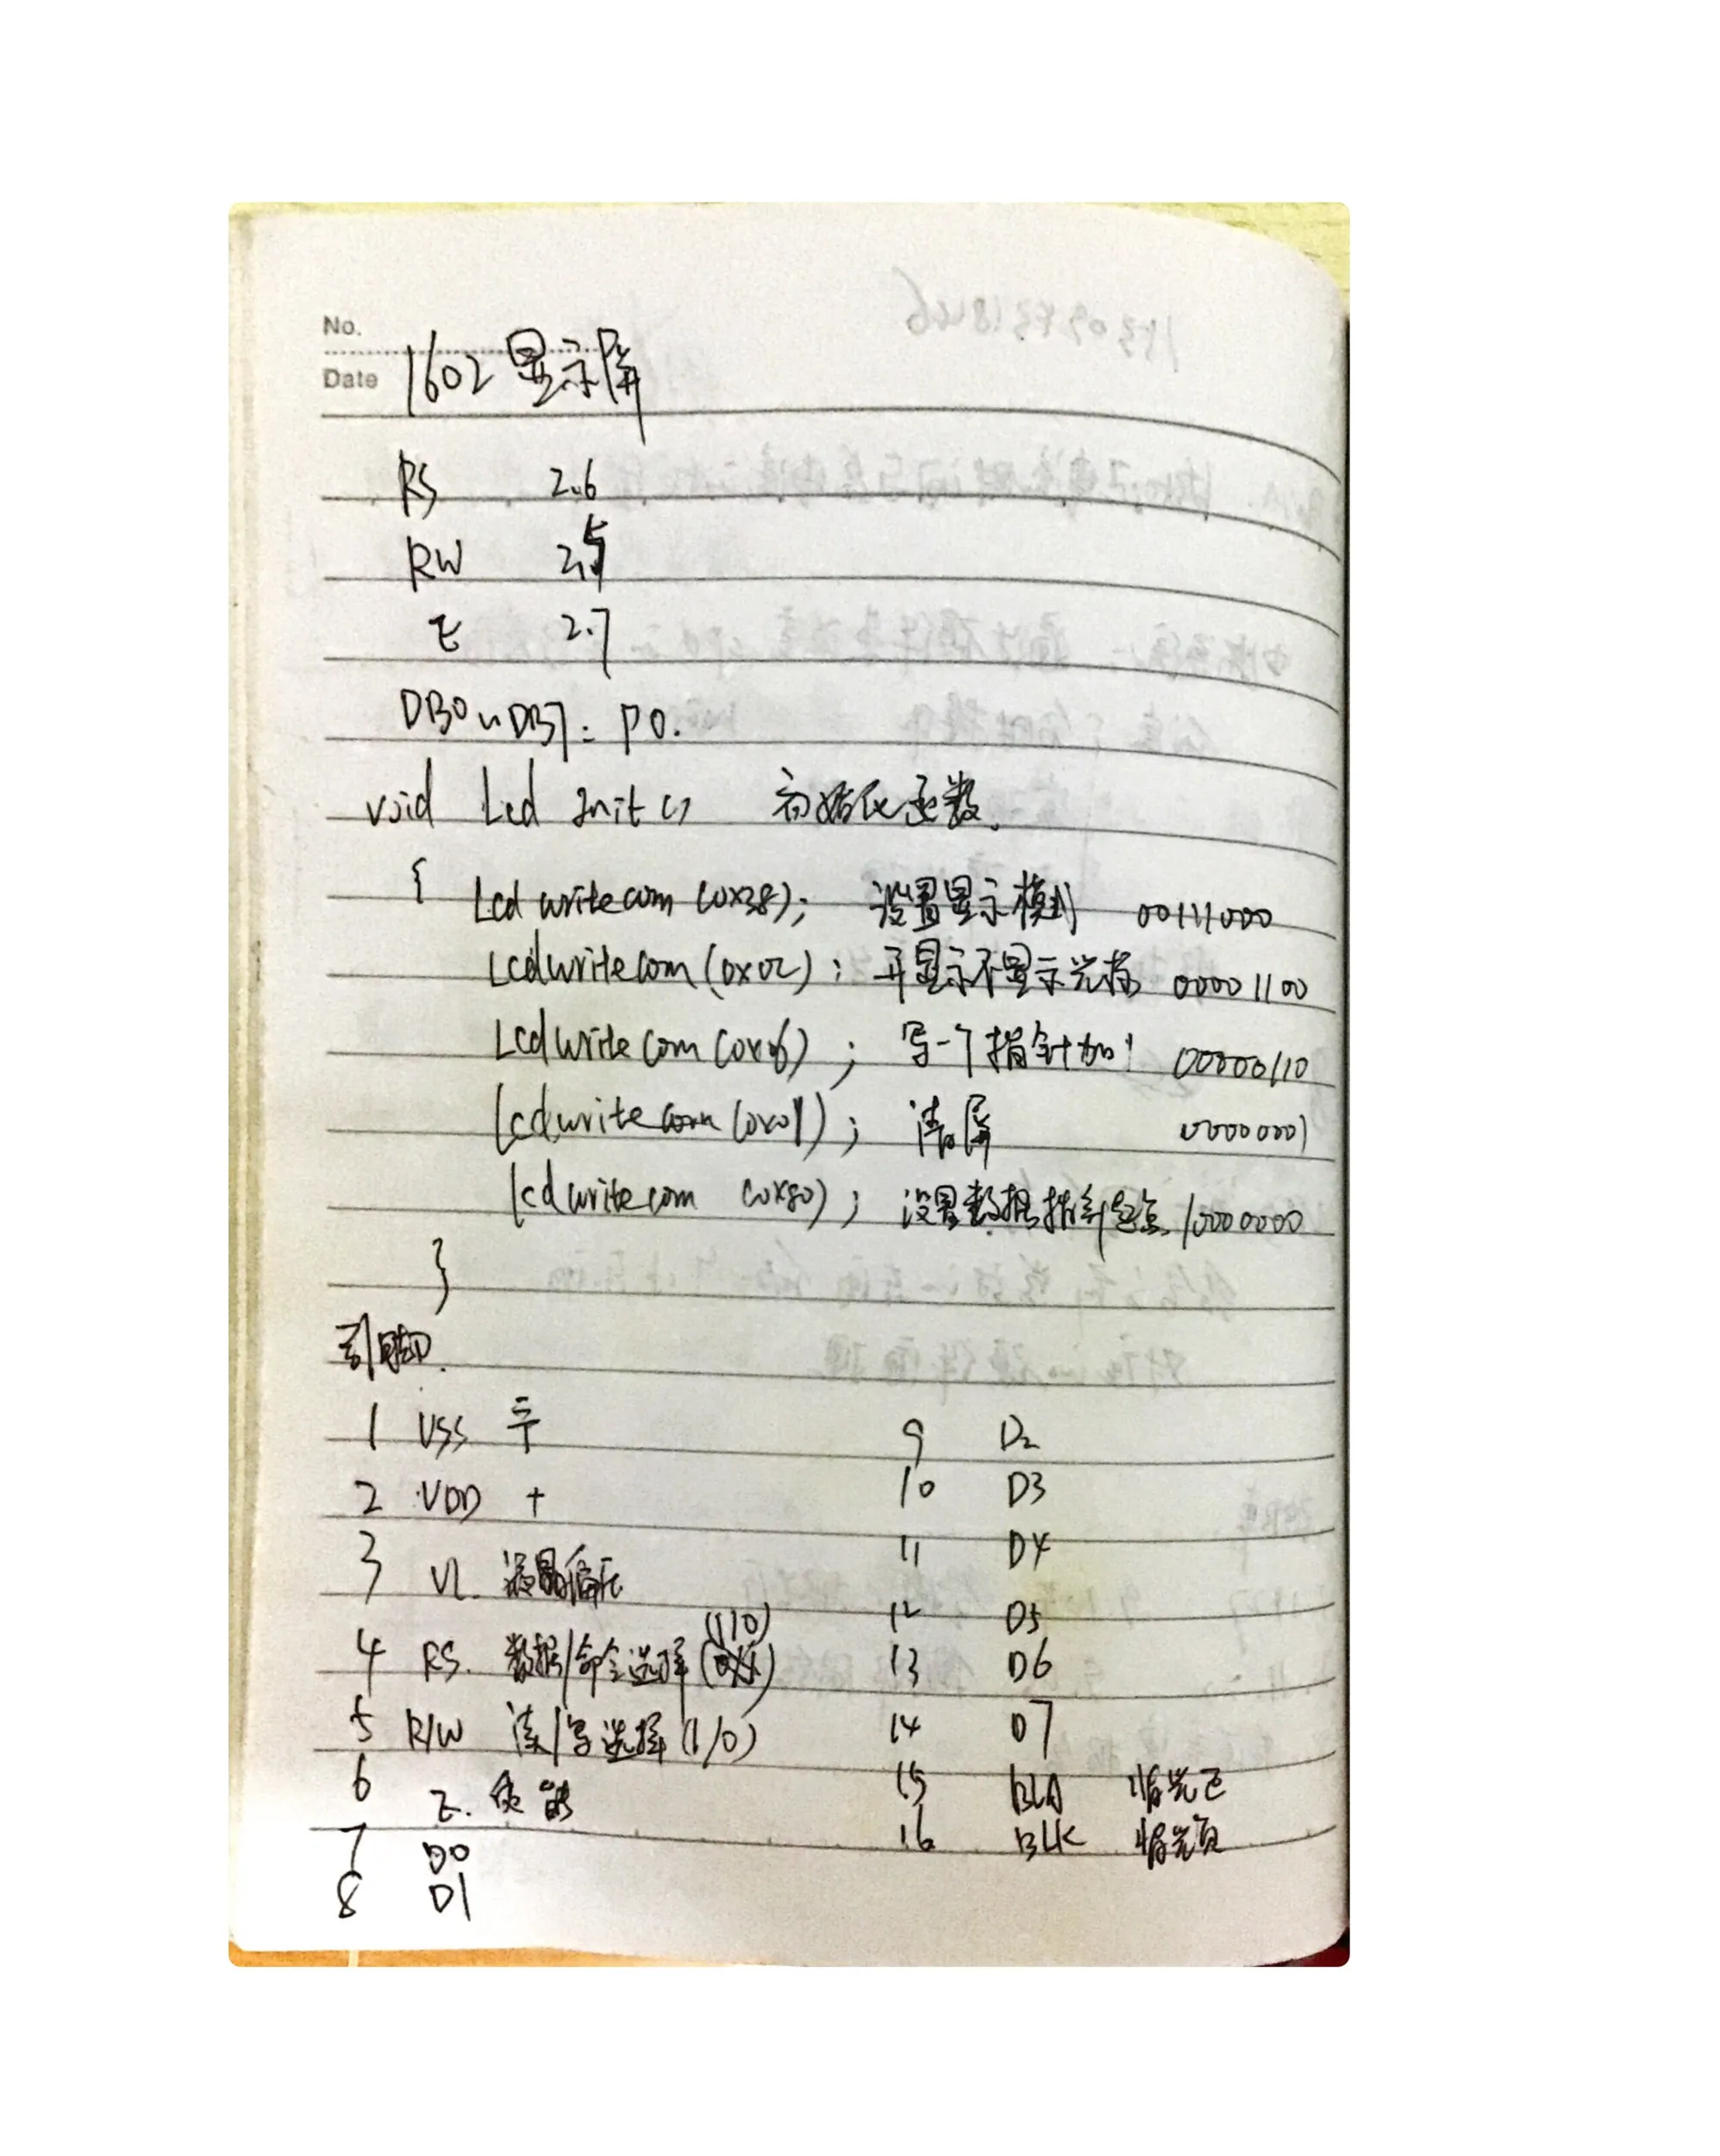 No.
Date 1602 显示屏
RS 2.6
RW 2.5
E 2.7
DB0~DB7: P0.
void Lcd Init () 初始化函数.
{ Lcd write com (0x38); 设置显示模式 00111000
Lcdwritecom (0x0C); 开显示不显示光标 00001100
Lcdwritecom (0x06); 写一个指针加1 00000110
Lcdwritecom (0x01); 清屏 00000001
Lcdwritecom (0x80); 设置数据指针起点 10000000
}
引脚.
1 VSS
2 VDD +
3 VL. 液晶偏压
(1/0)
4 RS. 数据/命令选择
5 R/W 读/写选择 (1/0)
6 E. 使能
7 D0
8 D1
9 D2
10 D3
11 D4
12 D5
13 D6
14 D7
15 BLA 背光正
16 BLK 背光负